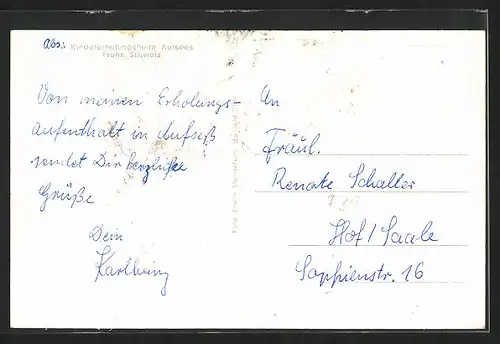 Abs.: Kindererholungsheim Aufsess
Fränk. Schweiz
Von meinen Erholungs-
aufenthalt in Aufseß
sendet Dir herzliche
Grüße
Dein
Karlheinz
An
Fräul.
Renate Schaller
Hof/Saale
Sophienstr. 16